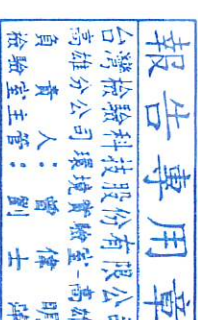 報告專用章
台灣檢驗科技股份有限公
高雄分公司環境實驗室-高雄
負責人：曾偉明
檢驗室主管：劉士